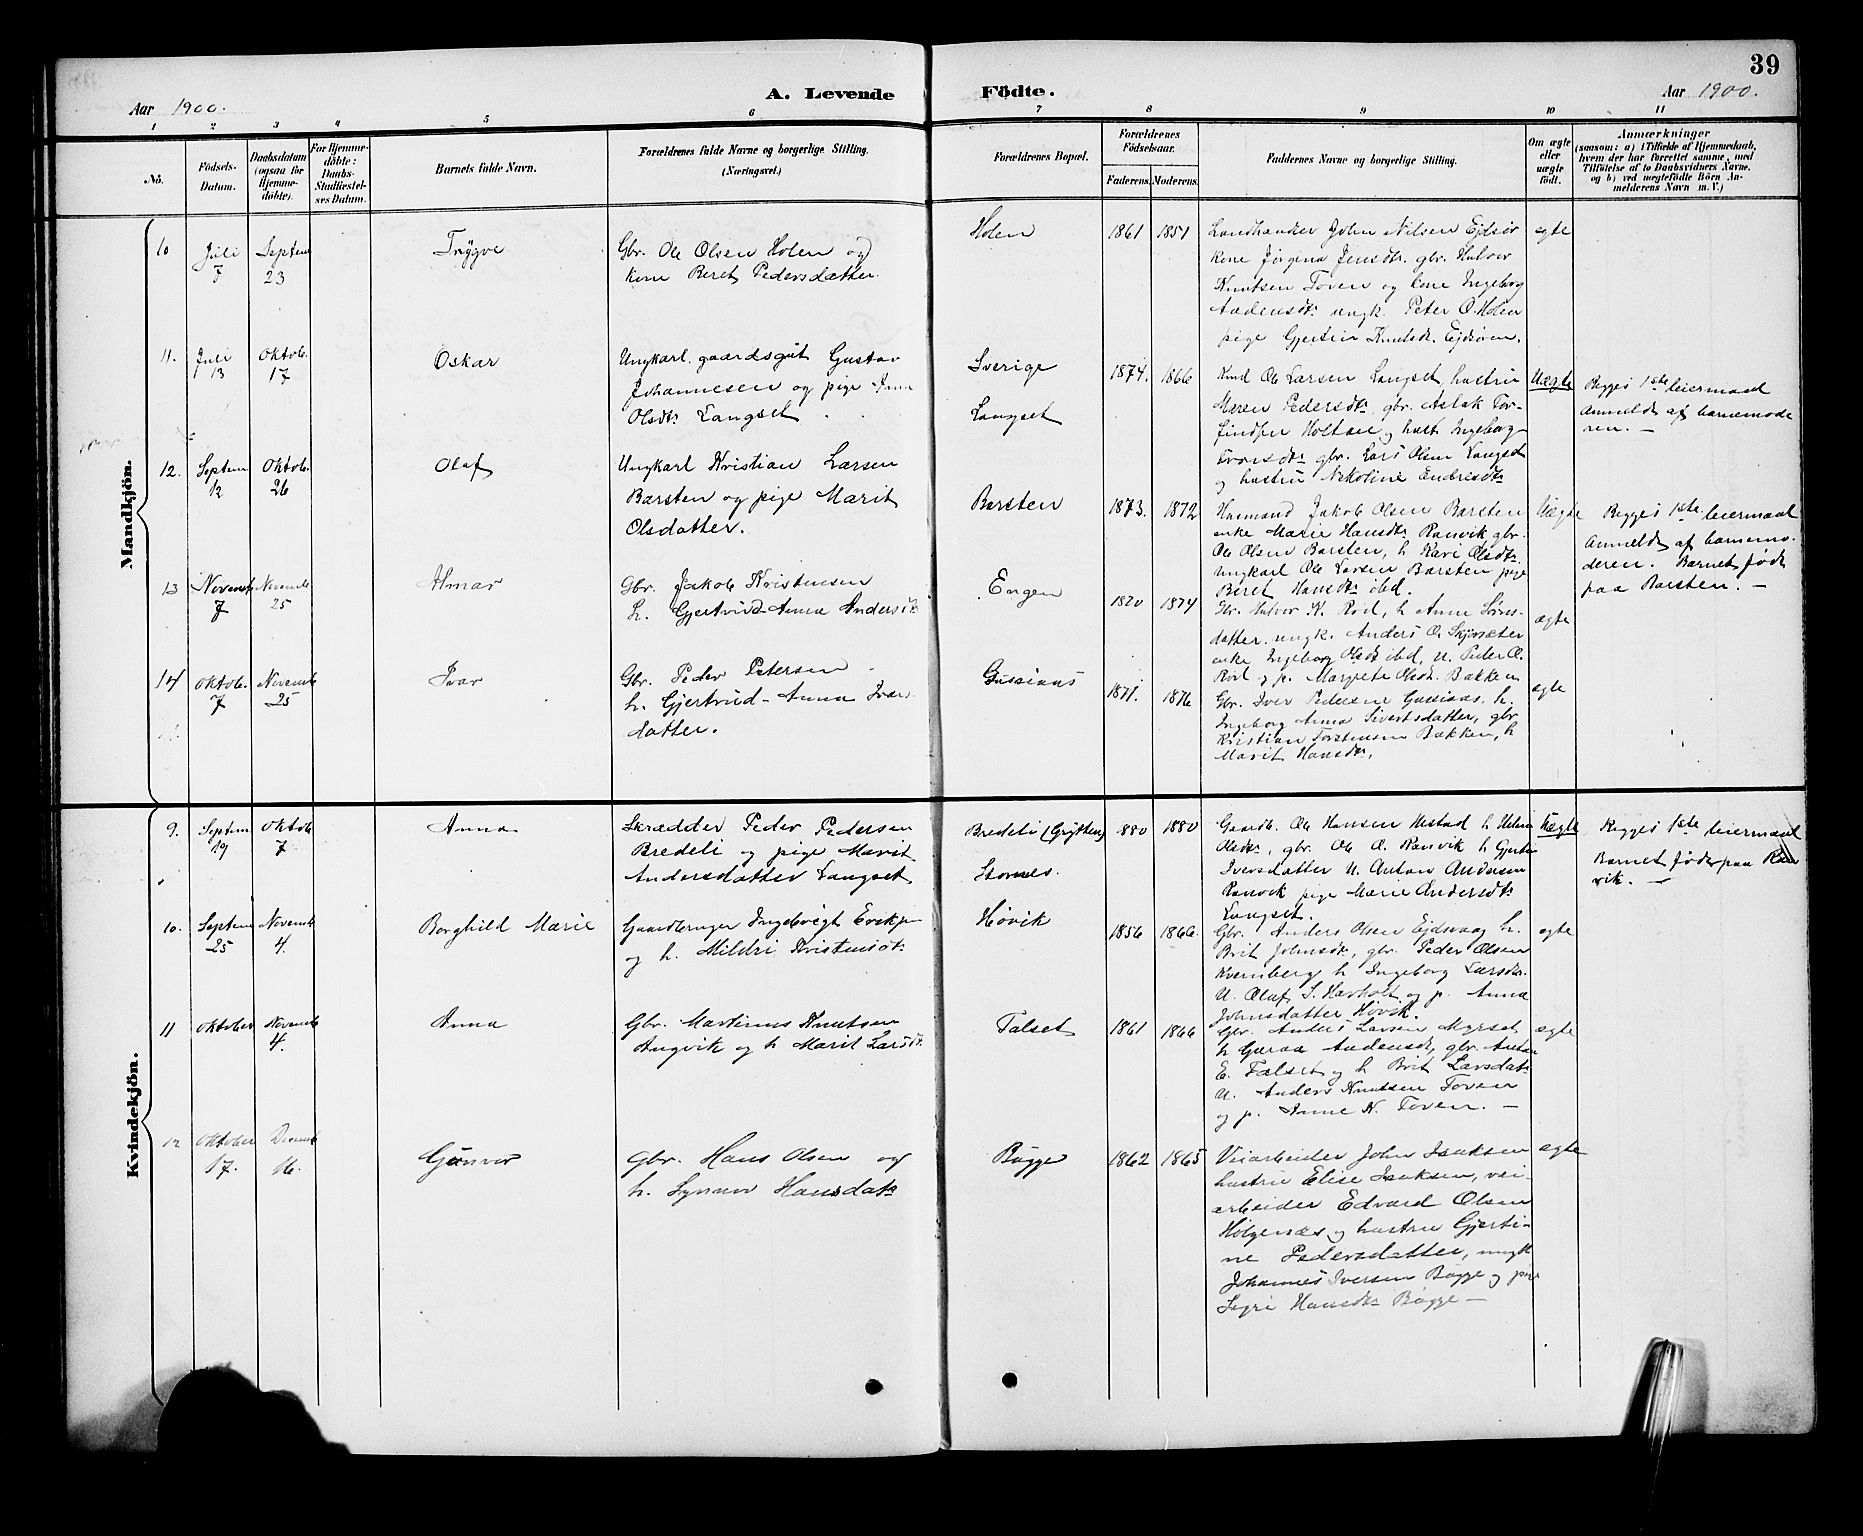 39
Aar 1900.
A. Levende Födte.
Aar 1900.
1 2 3 4 5 6 7 8 9 10 11
No.
Födsels-
Datum.
Daabsdatum
(ogsaa for
Hjemme-
döbte).
For Hjemme-
döbte:
Daabs-
Stadfæstel-
ses Datum.
Barnets fulde Navn.
Forældrenes fulde Navne og borgerlige Stilling.
(Næringsvei.)
Forældrenes Bopæl.
Forældrenes
Födselsaar.
Faderens. Moderens.
Faddernes Navne og borgerlige Stilling.
Om ægte
eller
uægte
födt.
Anmærkninger
(saasom: a) i Tilfælde af Hjemmedaab,
hvem der har forrettet samme, med
Tilföielse af to Daabsvidners Navne,
og b) ved uægtefödte Börn An-
melderens Navn m. V.)
Mandkjön.
10
Juli
5
Septem
23
Trygve
Gbr. Ole Olsen Holen og
kone Beret Pedersdatter.
Holen
1861 1851
Landhandler John Nilsen Ejdsör
kone Jörgina Jensdtr. gbr. Halvor
Knutsen Toven og kone Ingeborg
Andensdtr. ungk. Peter O. Holen
pige Gjertin Knutsdt. Ejdsören.
egte
11.
Juli
13
Oktob.
17
Oskar
Ungkarl. gaardsgut Gustav
Johannesen og pige Anna
Olsdtr. Langset
Sverige
Langset
1874. 1866
Ole Larsen Langset, hustru
Maren Pedersdtr. gbr. Aslak Tor-
findsen Holtan og hust. Ingeborg
gbr. Lars Olsen Langset
og hustru Nikoline Endresdtr.
Uægte
Begges 1ste leiermaal
Anmeldt af barnemode
ren. —
12.
Septem
12
Oktob.
26
Olaf
Ungkarl Kristian Larsen
Barsten og pige Marit
Olsdatter.
Barsten
1873. 1872
Husmand Jakob Olsen Barsten
enke Marie Hansdtr. Ranvik gbr.
Ole Olsen Barsten, h Kari Olsdtr.
ungkarl Ole Larsen Barsten pige
Beret Hansdtr ibd.
Uægte
Begges 1ste leiermaal
Anmeldt af barnemo-
deren. Barnet födt
paa Barsten. —
13
Novemb
7
Novemb
25
Almar
Gbr. Jakob Kristensen
h. Gjertrud-Anna Andersdt
Engen
1870 1874
Gbr. Halvor K. Röd, h Anne
datter. ungk. Anders O. Skjörsæter
enke Ingeborg Olsdt ibd, u. Peder A.
Röd og p. Margrete Olsdt. Bakken
ægte
14
Oktob.
7
Novemb
25
Ivar
Gbr. Peder Petersen
h. Gjertrud-Anna Ivar
datter.
Gussiaas
1871. 1876
Gbr. Iver Pedersen Gussiaas, h.
Ingeborg Anna Sivertsdatter, gbr.
Kristian Torstensen Bakken, h
Marit Hansdtr.
egte
Kvindekjön.
9.
Septem
19
Oktob
7
Anna
Skrædder Peder Pedersen
Bredeli og pige Marit
Andersdatter Langset
Bredeli (Grytten)
1880 1880
Gaardb. Ole Hansen Ustad h
Olsdtr, gbr. Ole A. Ranvik h Gjertin
Iversdatter U. Anton Andersen
Ranvik pige Marie Andersdtr
Langset.
Uægte
Begges 1ste leiermaal
Barnet födt paa Ran
vik. —
10.
Septem
25
Novemb
4.
Borghild Marie
Gaardbruger Ingebrigt
og h. Mildri Kristensdt
Hövik
1856 1866.
Gbr. Anders Olsen Ejdsvaag h.
Brit Johnsdt, gbr. Peder Olsen
Kvernberg h Ingeborg Larsdtr.
U. Olaf S. Havholt og p. Anna
Johnsdatter Hövik.
egte
11
Oktober
Novemb
4.
Anna
Gbr. Martinus Knutsen
Angvik og h Marit Larsdt
Talset
1861 1866
Gbr. Anders Larsen Myrset,
h Guraa Andensdt, gbr. Anton
E. Talset og h Brit Larsdat
U. Anders Knutsen Toven
og p. Anne K. Toven. —
egte
12
Oktober
17.
Decemb
16.
Gunvor
Gbr. Hans Olsen og
h. Synnöv Hansdatr
Bugge
1862 1865
Veiarbeider John Isaksen
hustru Elise Isaksen, vei-
arbeider Edvard Olsen
Holgenæs og hustru Gjerti-
ne Pedersdatter, ungk
Johannes Iversen Bugge og pige
Sigri Hansdtr Bugge —
egte